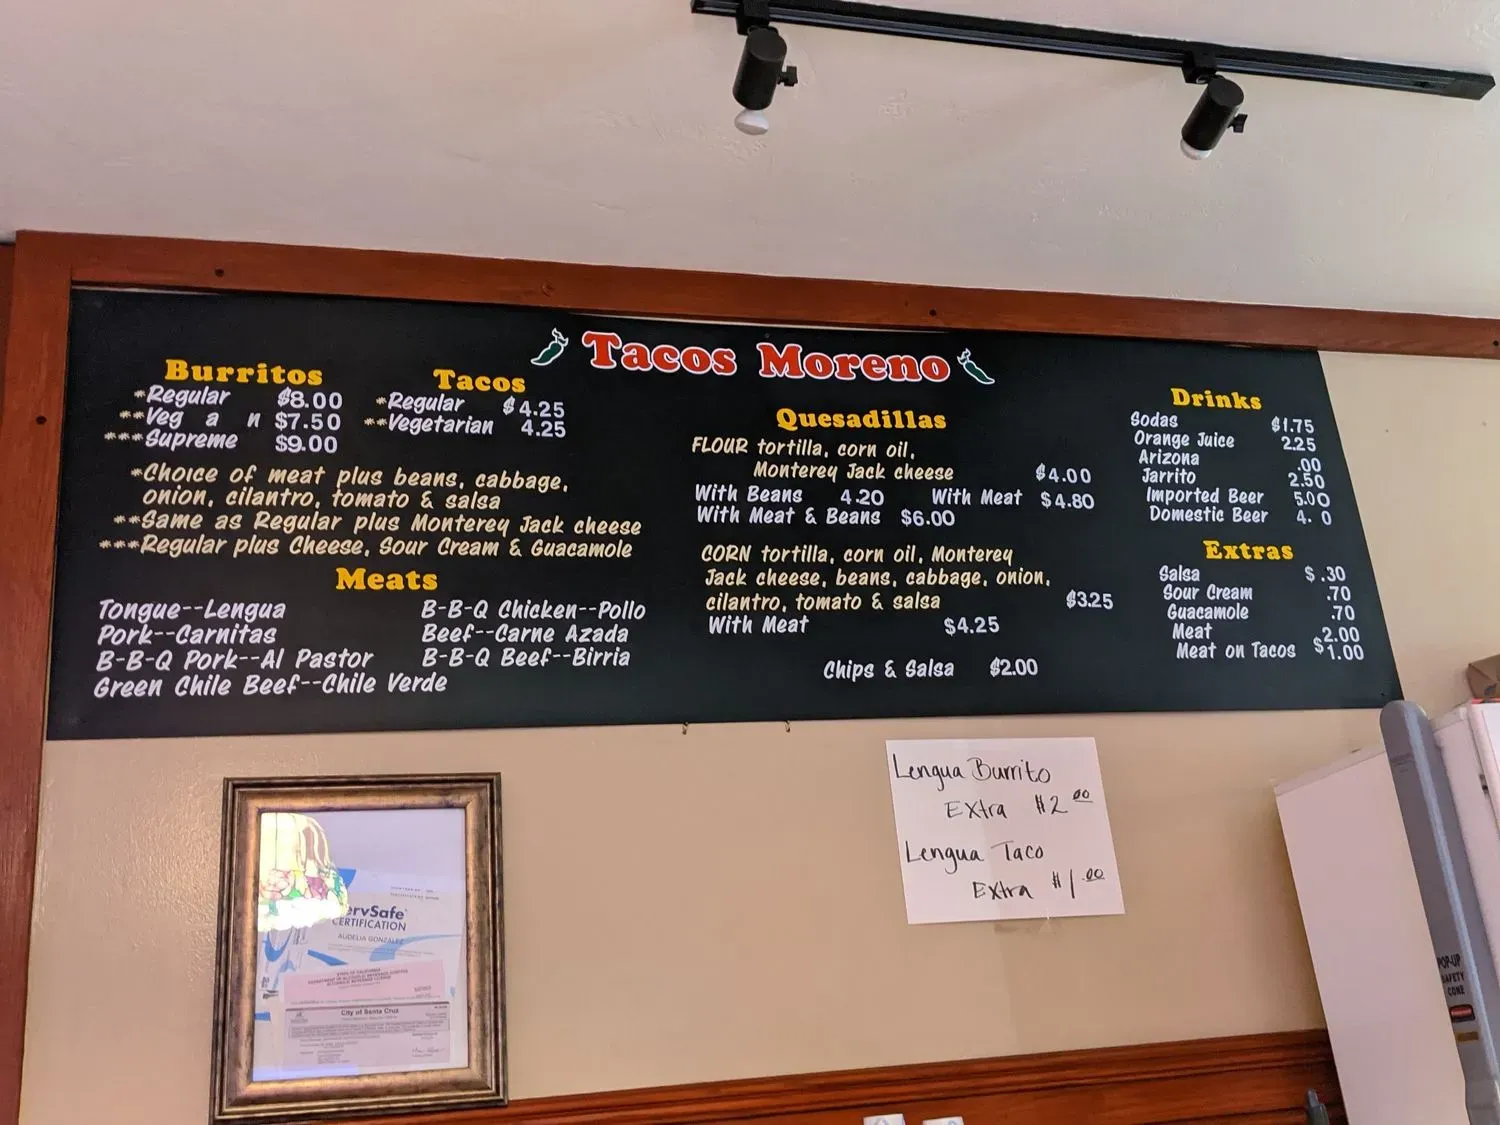 Tacos Moreno
Burritos
*Regular $8.00
**Veg a n $7.50
***Supreme $9.00
Tacos
*Regular $4.25
**Vegetarian 4.25
*Choice of meat plus beans, cabbage,
onion, cilantro, tomato & salsa
**Same as Regular plus Monterey Jack cheese
***Regular plus Cheese, Sour Cream & Guacamole
Meats
Tongue--Lengua
Pork--Carnitas
B-B-Q Pork--Al Pastor
Green Chile Beef--Chile Verde
B-B-Q Chicken--Pollo
Beef--Carne Azada
B-B-Q Beef--Birria
Quesadillas
FLOUR tortilla, corn oil,
Monterey Jack cheese $4.00
With Beans 4.20 With Meat $4.80
With Meat & Beans $6.00
CORN tortilla, corn oil, Monterey
Jack cheese, beans, cabbage, onion,
cilantro, tomato & salsa $3.25
With Meat $4.25
Chips & Salsa $2.00
Drinks
Sodas $1.75
Orange Juice 2.25
Arizona .00
Jarrito 2.50
Imported Beer 5.00
Domestic Beer 4. 0
Extras
Salsa $.30
Sour Cream .70
Guacamole .70
Meat 2.00
Meat on Tacos $1.00
Lengua Burrito
Extra $2.00
Lengua Taco
Extra $1.00
ervSafe
CERTIFICATION
AUDELIA GONZALEZ
STATE OF CALIFORNIA
City of Santa Cruz
POP-UP
SAFETY
CONE